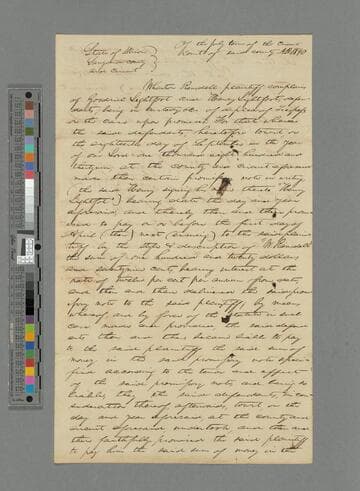 State of Illinois Of the July term of the Circuit
Sangamon county Court of said county AD 1840
and Circuit
Wharton Ransdell plaintiff complains
of Goodrich Lightfoot and Henry Lightfoot, defen
dants being in custody &c of a plea of trespass
on the case upon promises. For that whereas
the said defendants, heretofore towit on
the eighteenth day of September in the year
of our Lord one thousand eight hundred and
thirty at the county and circuit aforesaid
made their certain promissory note in writing
(the said Henry signing his name thereto "Henry
Lightfoot") bearing date the day and year
aforesaid and thereby then and there promi
sed to pay on or before the first day of
April (then) next (ensuing) to the said plain
tiff by the style & description of W. Ransdell
the sum of one hundred and twenty dollars
and seventy cents, bearing interest at the
rate of twelve per cent per annum from date,
and then and there delivered the said promis
sory note to the said plaintiff; by means
whereof and by force of the statute in such
case made and provided the said defend
ants then and there became liable to pay
to the said plaintiff the said sum of
money in the said promissory note speci
fied according to the tenor and effect
of the said promissory note and being so
liable, they the said defendants, in con
sideration thereof afterwards, towit on the
day and year aforesaid at the county and
circuit aforesaid undertook and then and
there faithfully promised the said plaintiff
to pay him the said sum of money in the